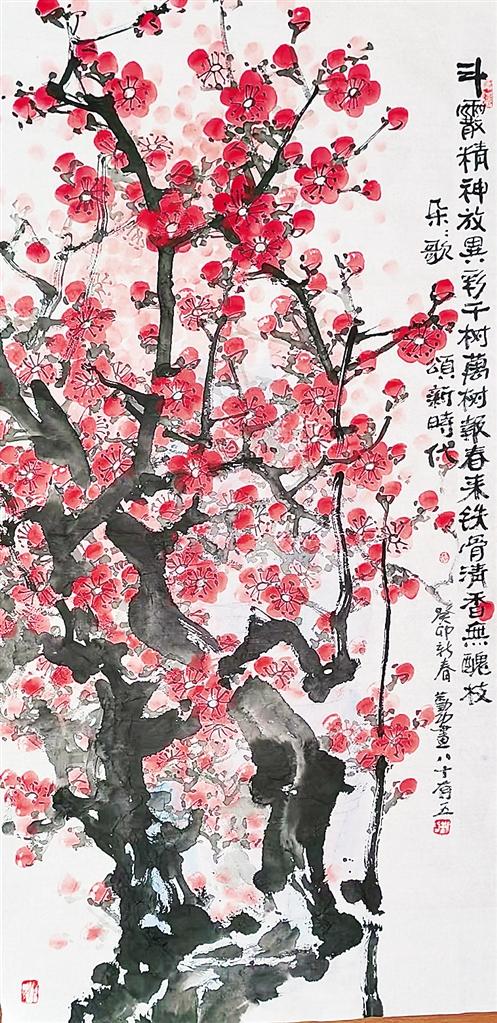 斗霰精神放異彩千树萬树報春来铁骨清香無醜枝
朵:歌頌新時代
癸卯新春 畫八十有五